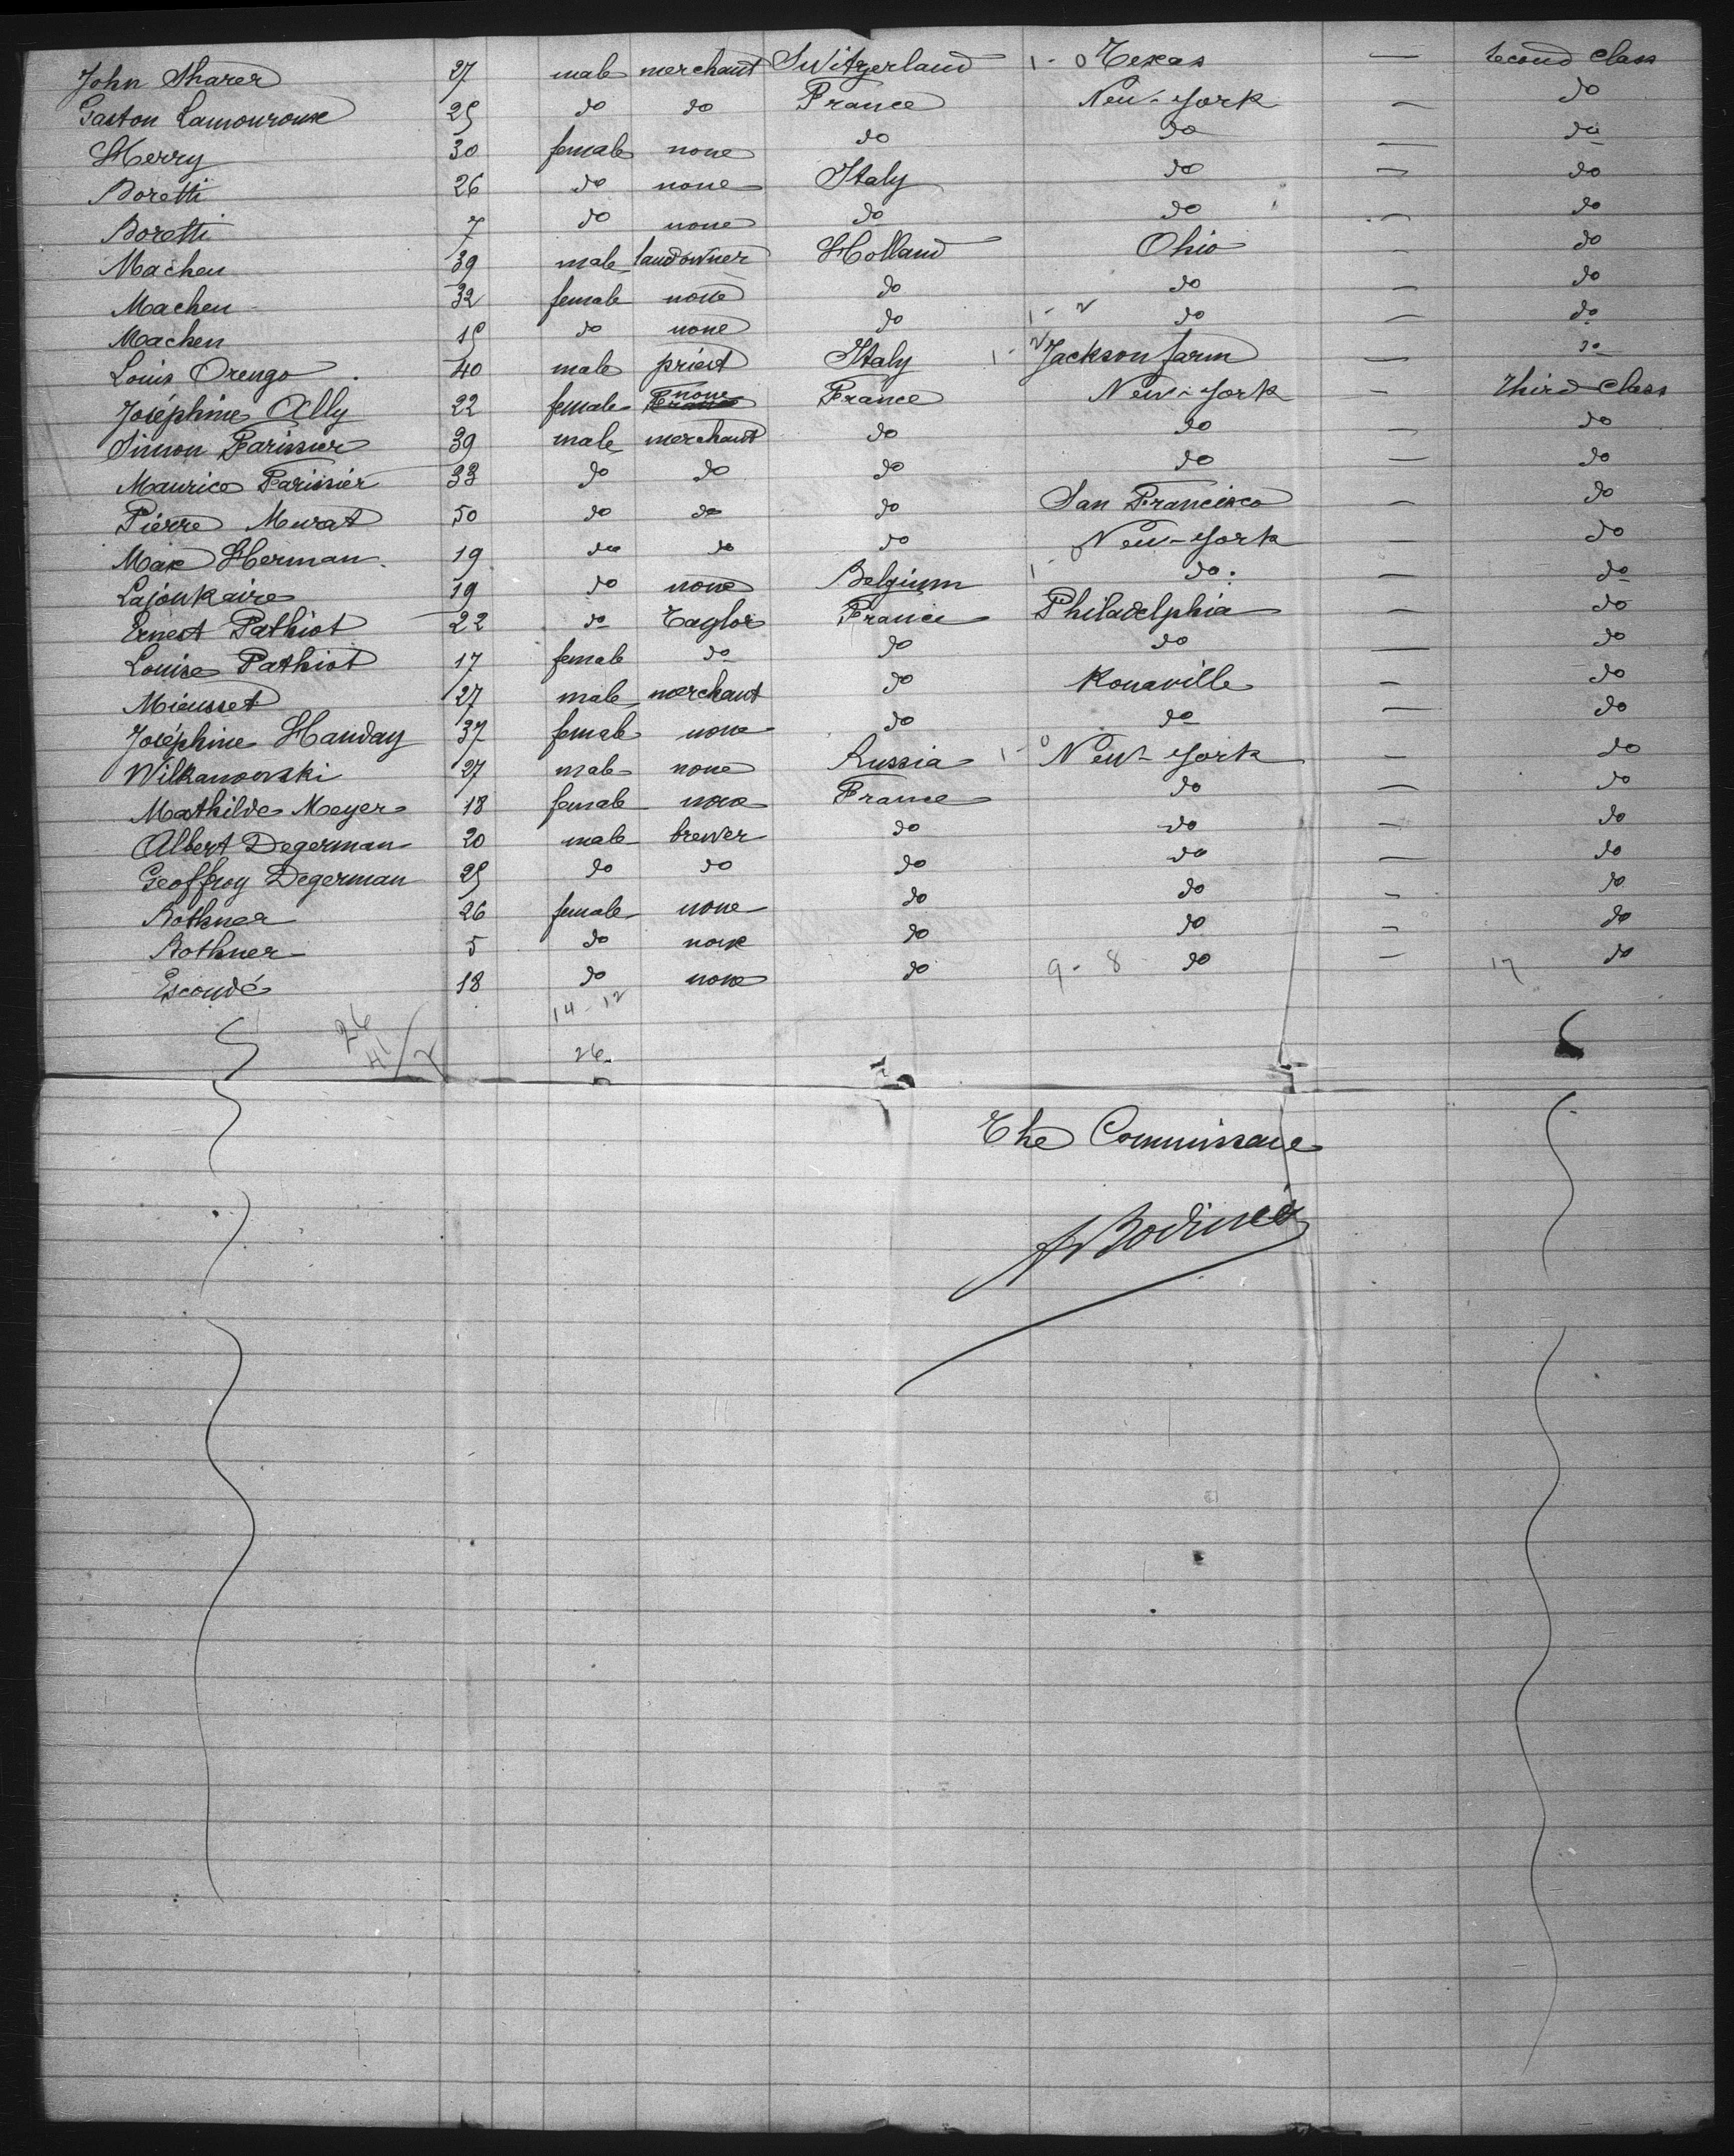 John Sharer 27 male merchant Switzerland 1 - 0 Texas — Second Class
Gaston Lamouroux 25 do do France New-York — do
Herry 30 female none do do — do
Boretti 26 do none Italy do — do
Boretti 7 do none do do — do
Machen 39 male landowner Holland Ohio - do
Machen 32 female none do do — do
Machen 15 do none do 1 - 2 do — do
Louis Orengo 40 male priest Italy 1 - Jackson farm — do
Joséphine Ally 22 female none France New-York — Third Class
Simon Parissier 39 male merchant do do — do
Maurice Parissier 33 do do do do — do
Pierre Murat 50 do do do San Francisco — do
Max Herman 19 do do do New-York — do
Lajonkaire 19 do none Belgium 1 - 0 do — do
Ernest Pathiot 22 do Taylor France Philadelphia — do
Louise Pathiot 17 female do do do — do
Mieusset 27 male merchant do Konaville — do
Joséphine Handay 37 female none do do — do
Wilkanowski 27 male none Russia 1 - 0 New-York — do
Mathilde Meyer 18 female none France do — do
Albert Degerman 20 male brewer do do — do
Geoffroy Degerman 25 do do do do — do
Rothner 26 female none do do - do
Rothner 5 do none do do - do
Escoudé 18 do none do 9 - 8 do — 17 do
14 - 12
26
26
The Commissaire
ABodinier